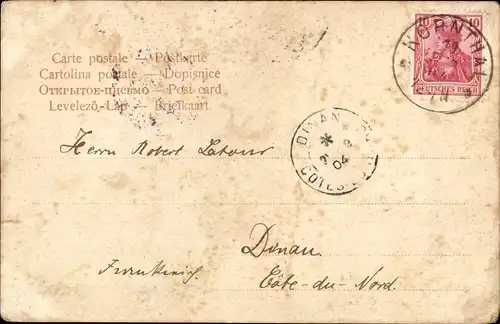 Carte postale — Postkarte
Cartolina postale — Dopisnice
Открытое письмо — Post card
Levelező-Lap — Briefkaart.
10 10
DEUTSCHES REICH
KORNTHAL
DINAN
04
COTES
Herrn Robert Latour
Dinan.
Frankreich.
Côte-du-Nord.